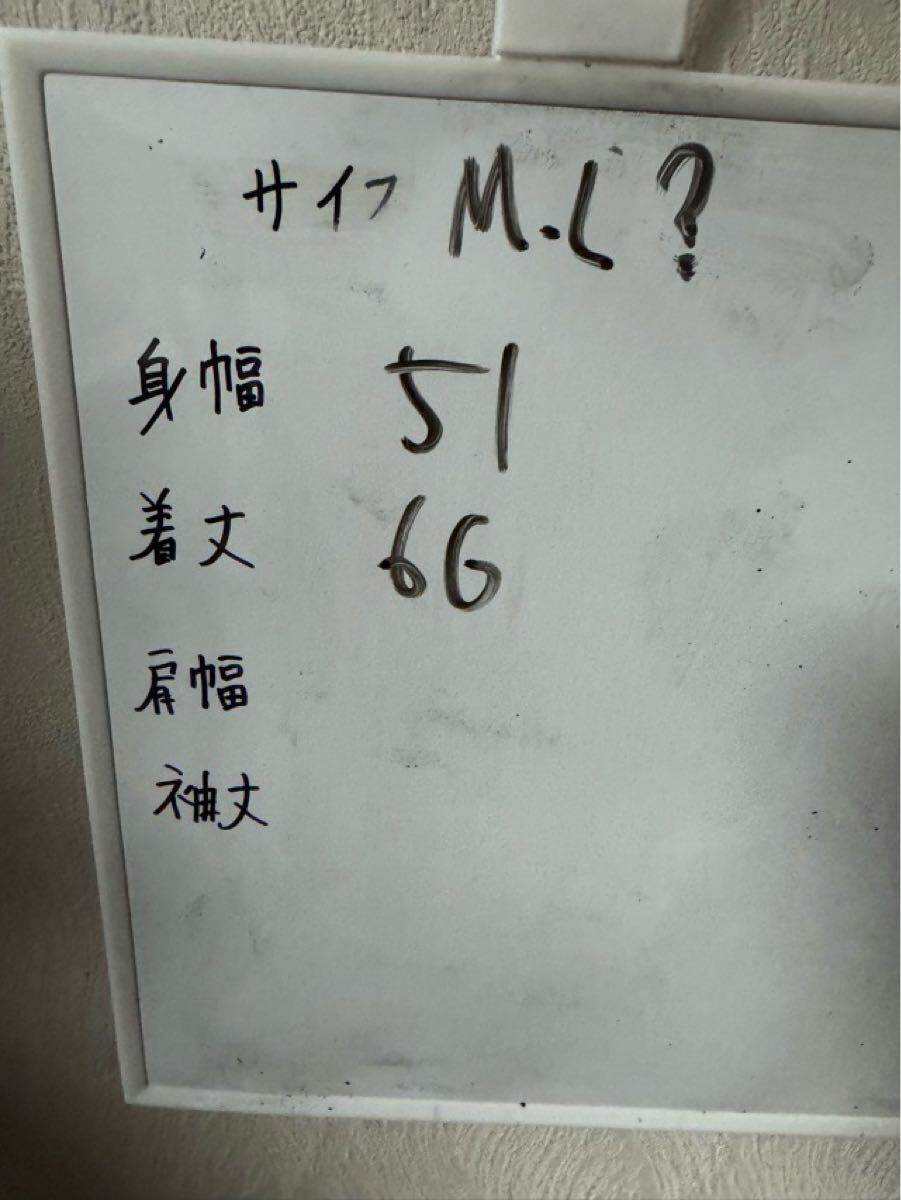 サイフ M.L?
身幅 51
着丈 66
肩幅
袖丈